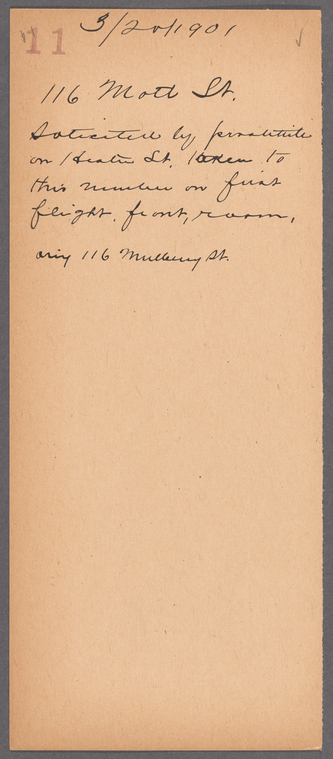 11
3/20/1901
116 Mott St.
Solicited by prostitute
on Hester St. taken to
this number on first
flight, front, room,
116 Mulberry St.